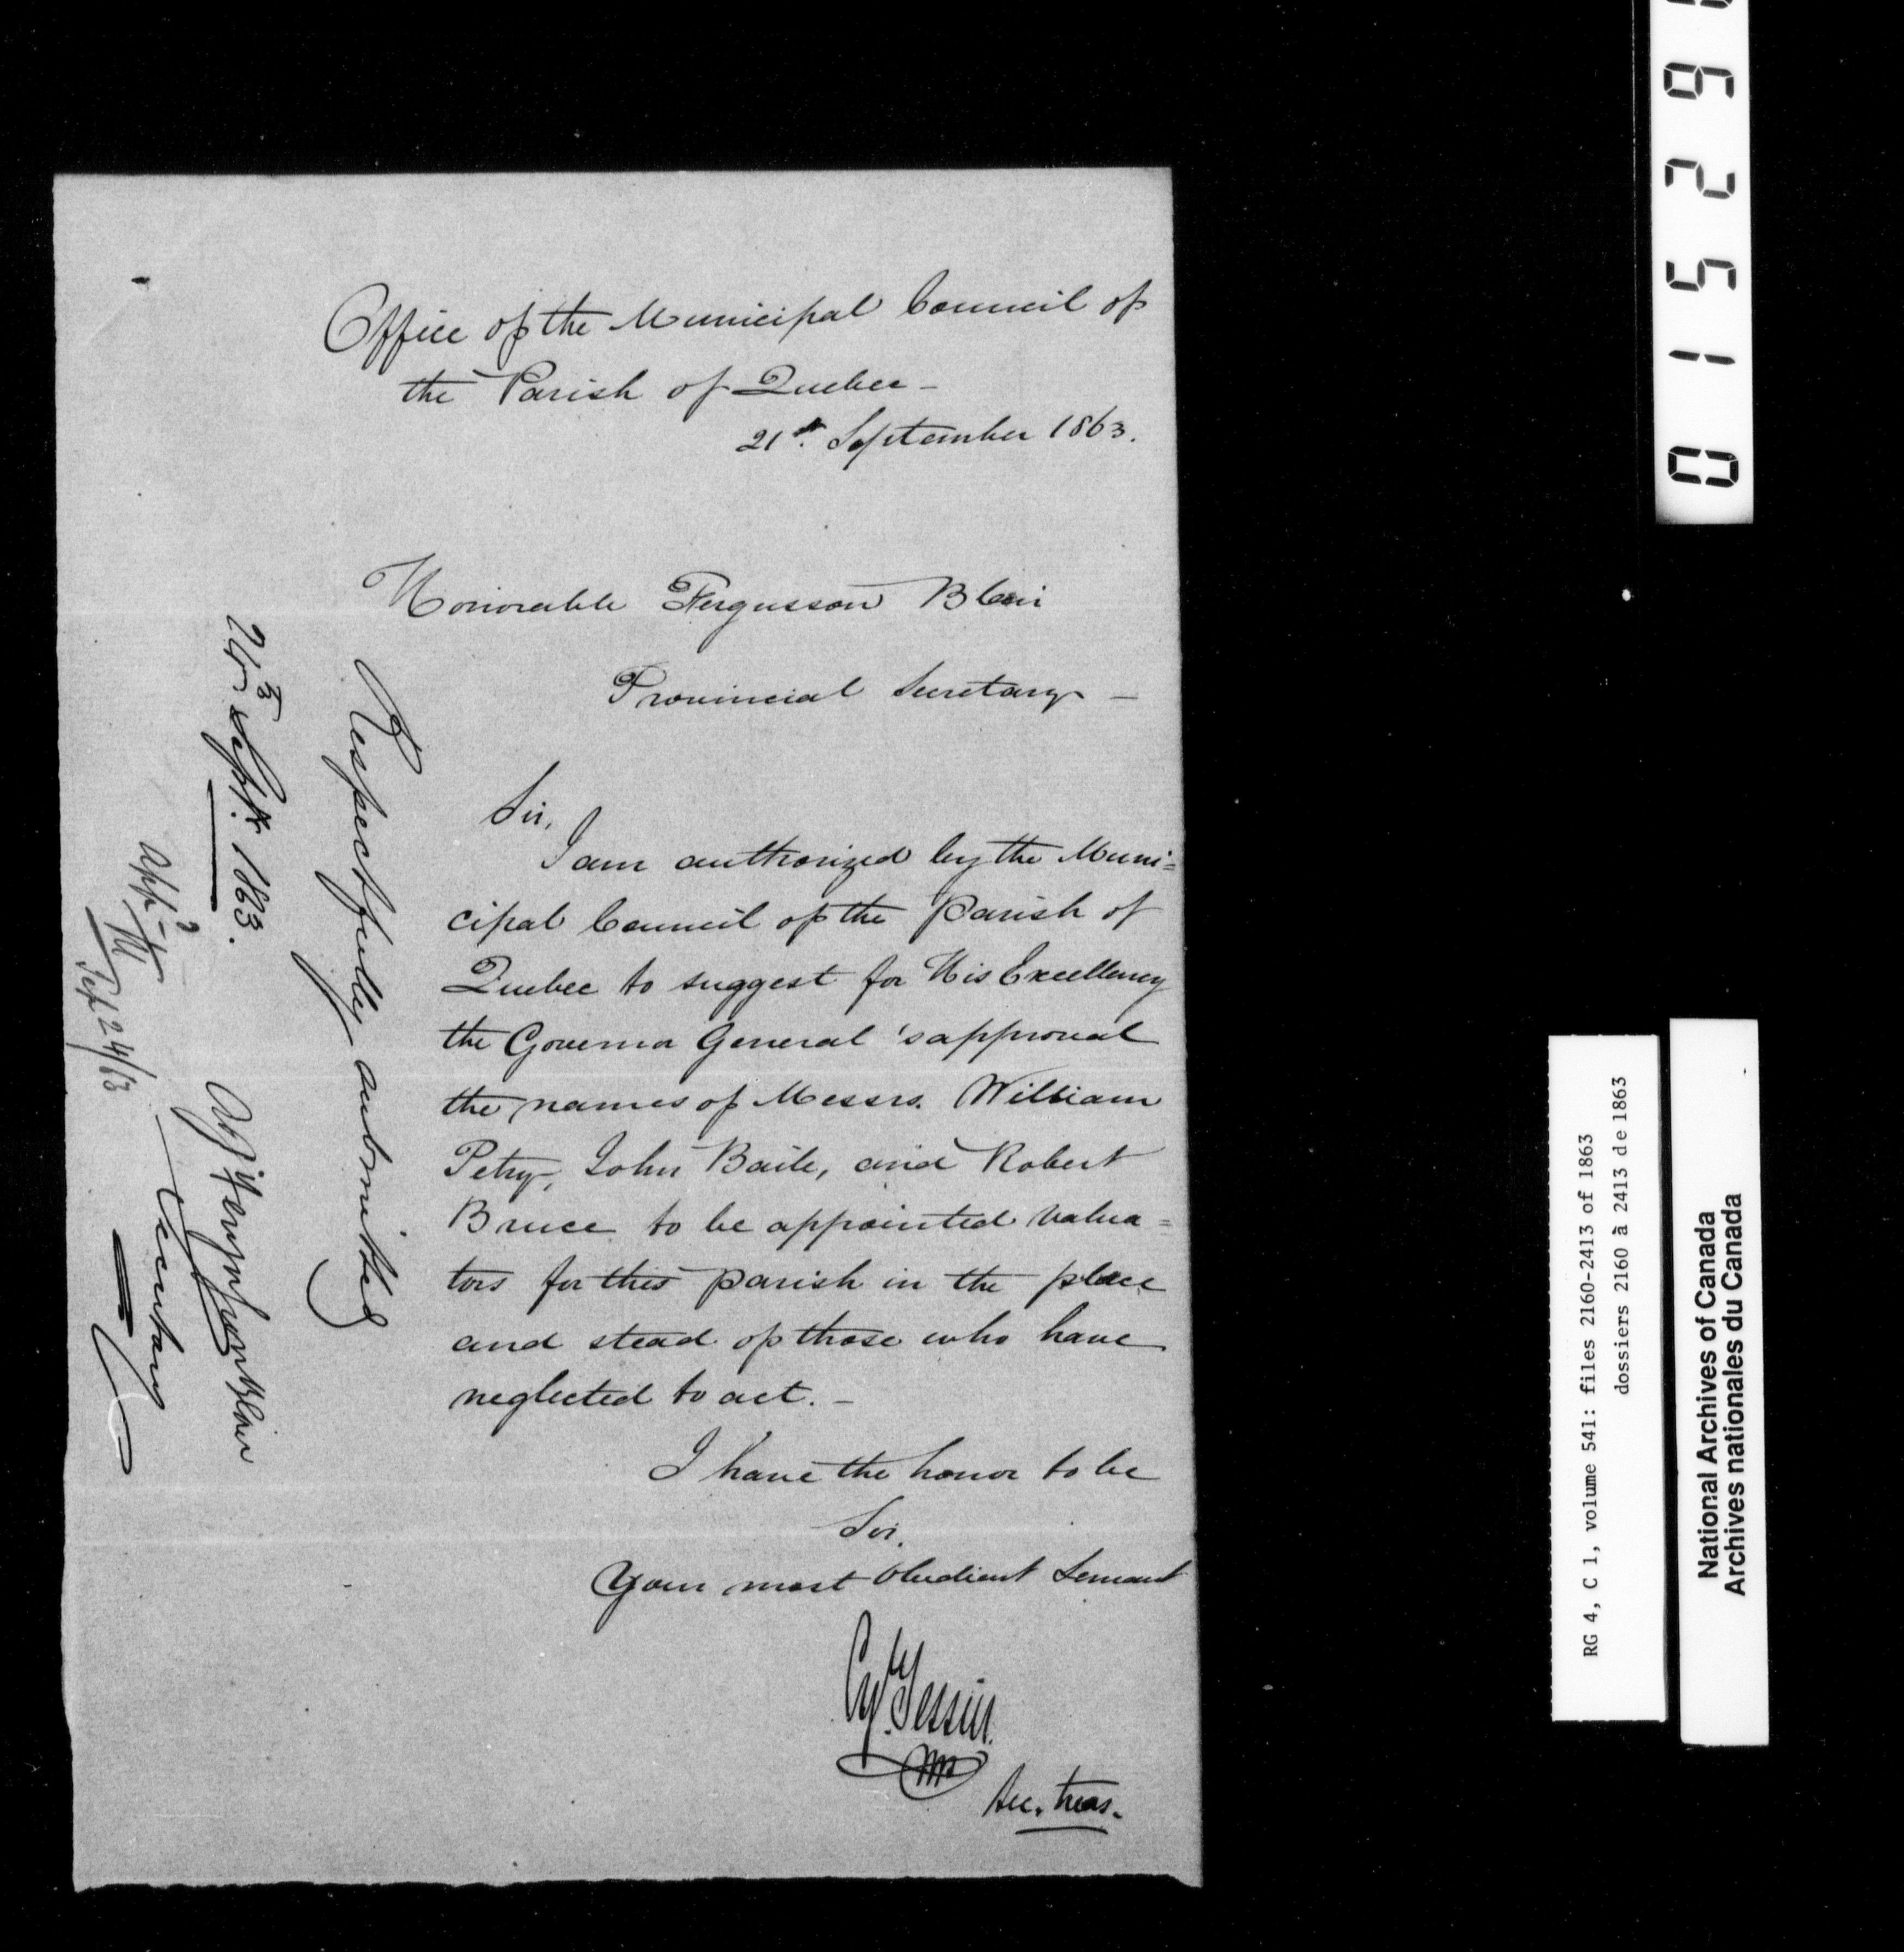 Office of the Municipal Council of
the Parish of Quebec -
21st. September 1863.
Honorable Fergusson Blair
Provincial Secretary -
Sir,
I am authorized by the Muni=
cipal Council of the Parish of
Quebec to suggest for His Excellency
the Governor General 's approval
the names of Messrs. William
Petry, John Baile, and Robert
Bruce to be appointed valua=
tors for this parish in the place
and stead of those who have
neglected to act. -
I have the honor to be
Sir,
Your most Obedient Servant
Cy. Tessier.
Sec. Treas.
Respectfully submitted
Sept. 1863.
A J Fergusson Blair
Secretary
Appd.
Sep 24/63
0 1 5 2 9
RG 4, C 1, volume 541: files 2160-2413 of 1863
dossiers 2160 à 2413 de 1863
National Archives of Canada
Archives nationales du Canada